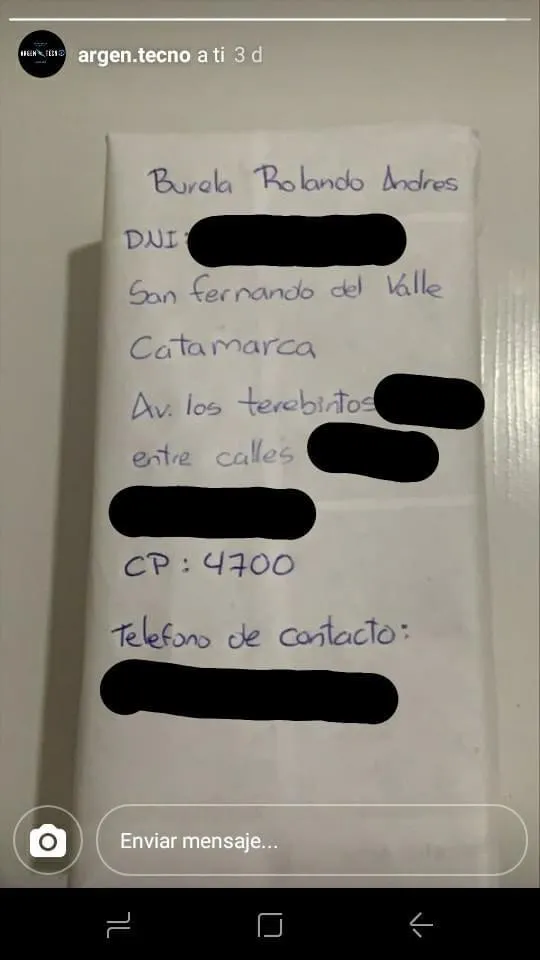 argen.tecno a ti 3 d
Burela Rolando Andres
DNI:
San fernando del Valle
Catamarca
Av. los terebintos
entre calles
CP: 4700
Telefono de contacto:
Enviar mensaje...